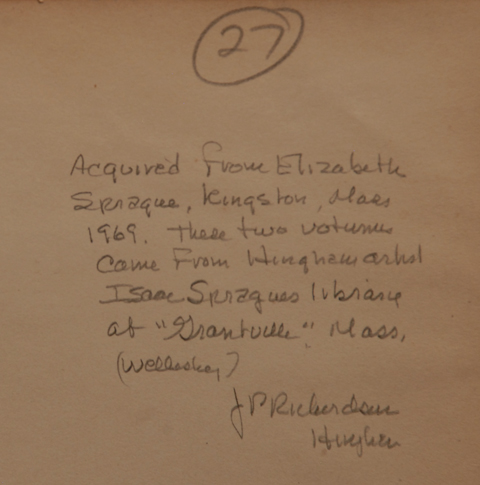 27
Acquired from Elizabeth
Sprague, Kingston, Mass
1969. These two volumes
came from Hingham artist
Isaac Spragues library
at "Grantville" Mass,
(Wellesley)
J P Richardson
Hingham